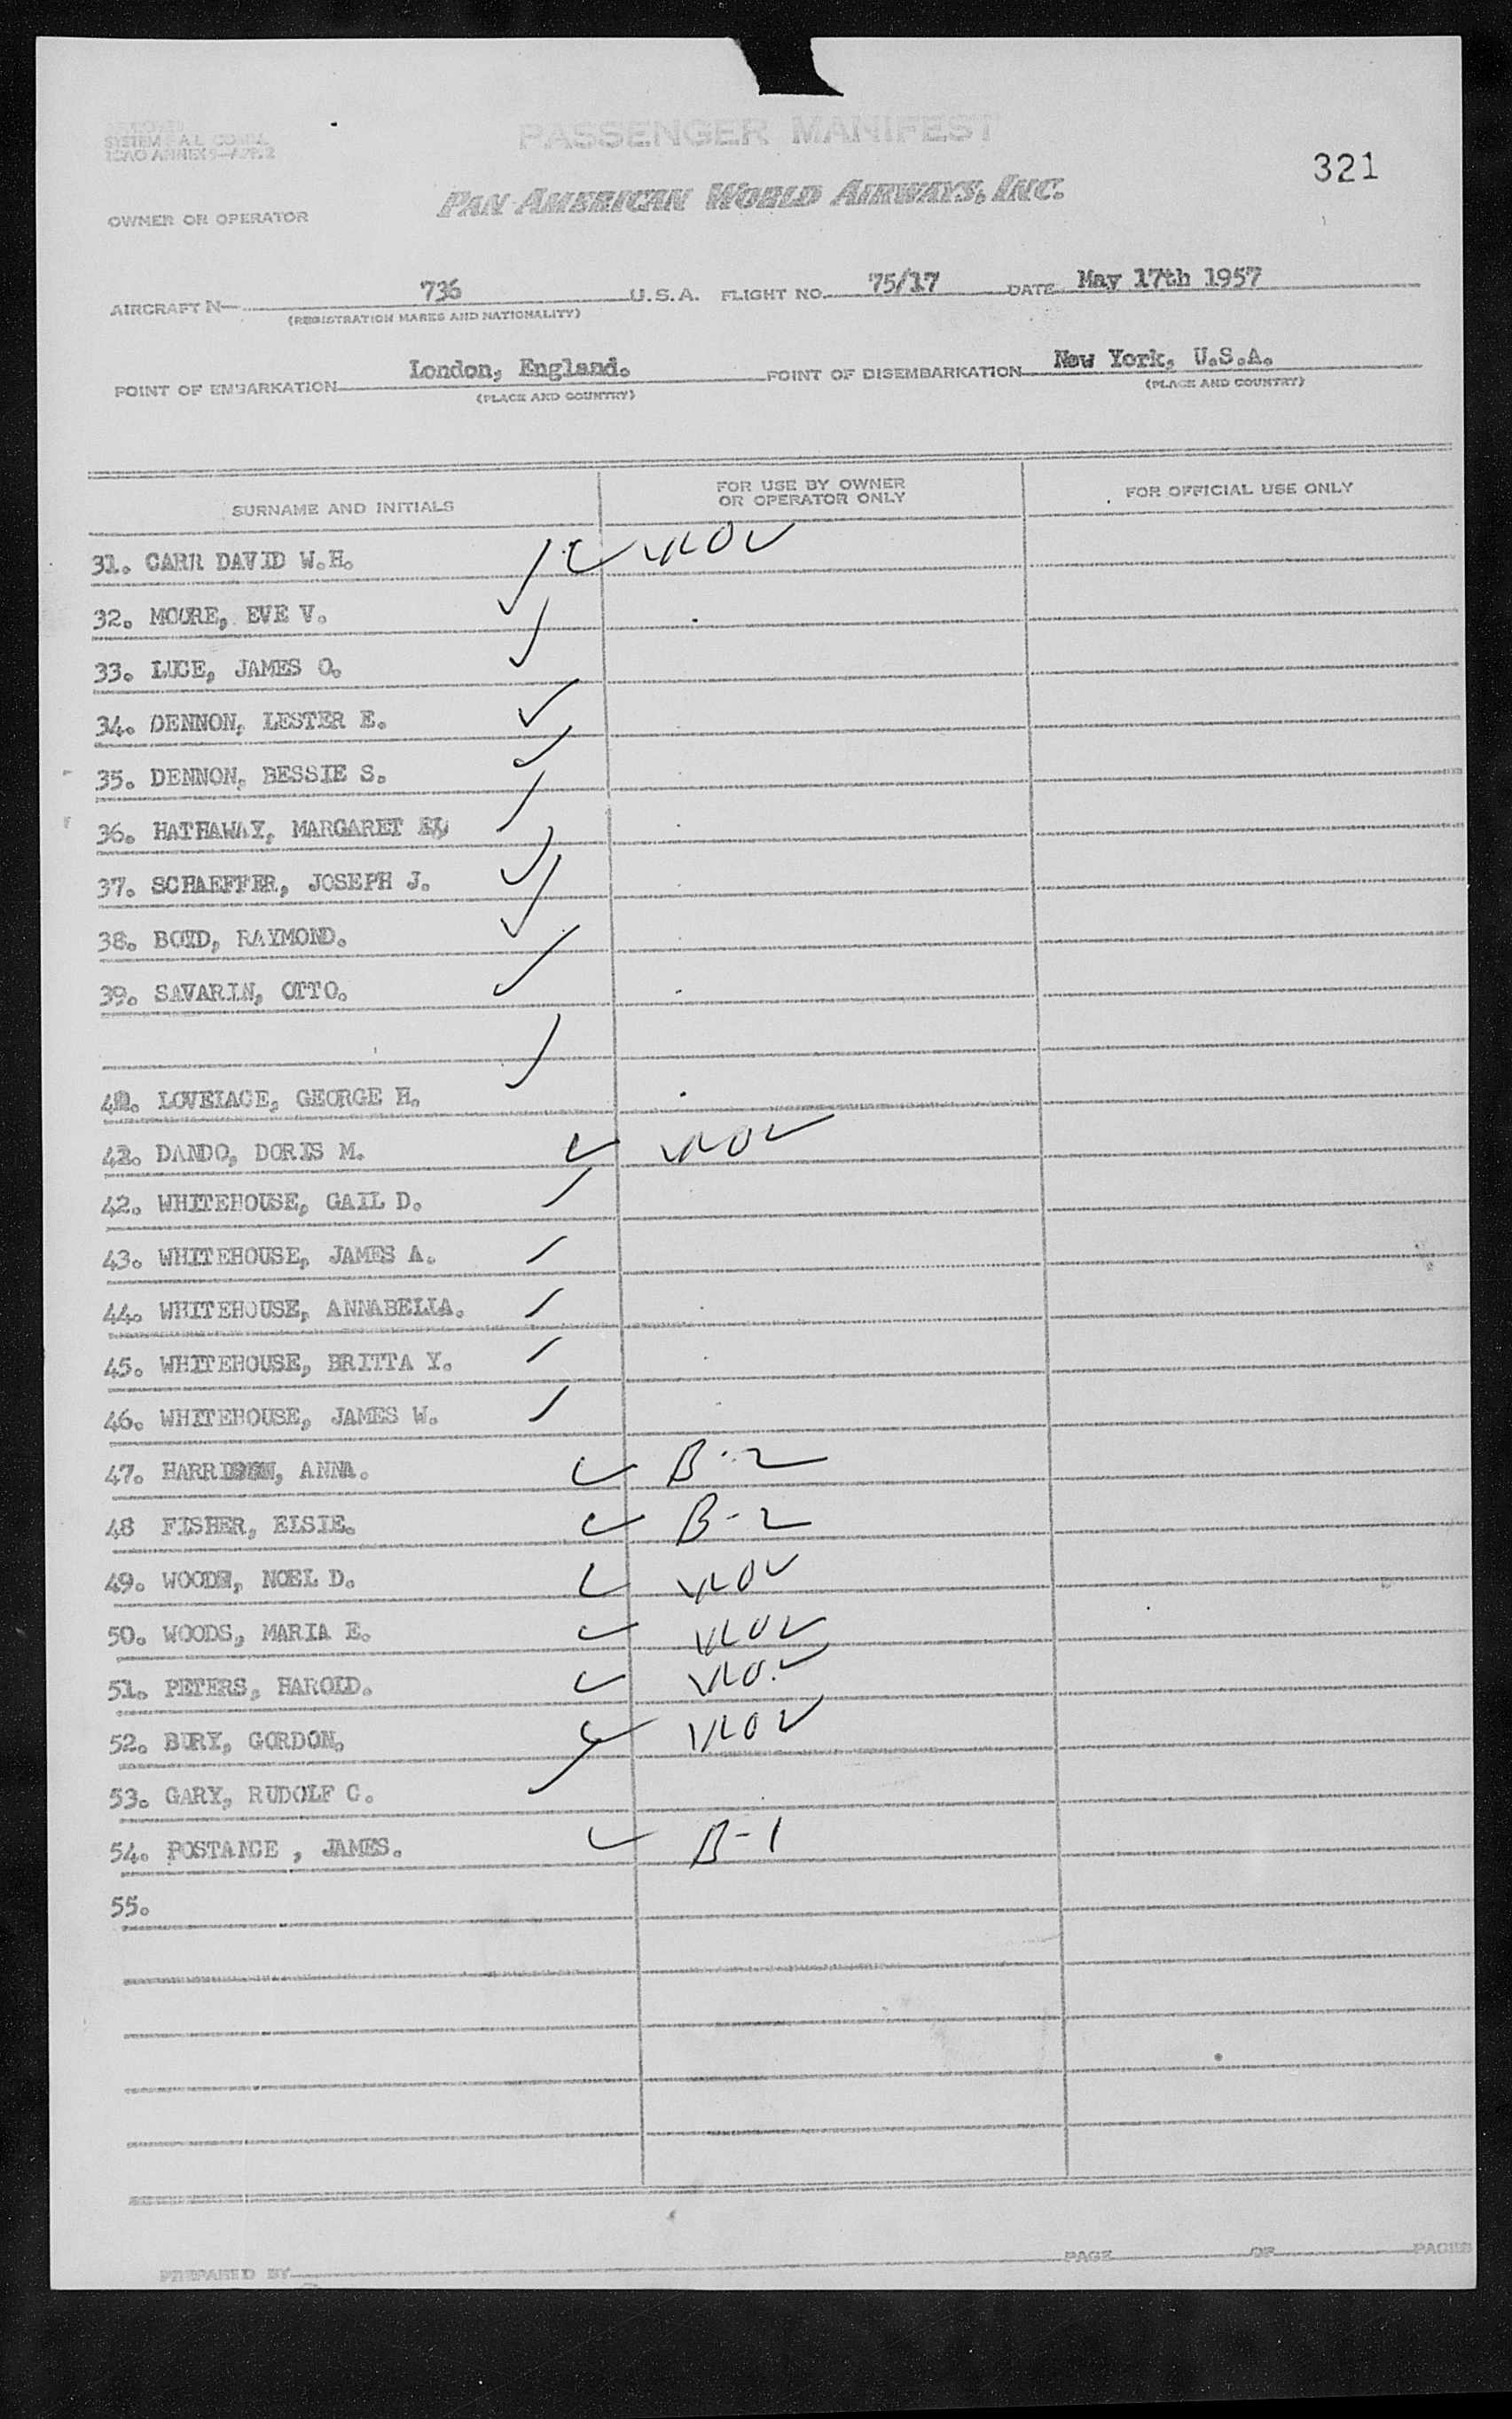 APPROVED
SYSTEM F.A.L. COMM.
ICAO ANNEX 9—APP. 2
PASSENGER MANIFEST
321
OWNER OR OPERATOR
PAN AMERICAN WORLD AIRWAYS, INC.
AIRCRAFT N— 736 U.S.A. FLIGHT NO. 75/17 DATE May 17th 1957
(REGISTRATION MARKS AND NATIONALITY)
POINT OF EMBARKATION London, England. POINT OF DISEMBARKATION New York, U.S.A.
(PLACE AND COUNTRY) (PLACE AND COUNTRY)
SURNAME AND INITIALS FOR USE BY OWNER OR OPERATOR ONLY FOR OFFICIAL USE ONLY
31. CARR DAVID W.H.
32. MOORE, EVE V.
33. LUCE, JAMES O.
34. DENNON, LESTER E.
35. DENNON, BESSIE S.
36. HATHAWAY, MARGARET
37. SCHAEFFER, JOSEPH J.
38. BOYD, RAYMOND.
39. SAVARIN, OTTO.
LOVELACE, GEORGE H.
DANDO, DORIS M.
42. WHITEHOUSE, GAIL D.
43. WHITEHOUSE, JAMES A.
44. WHITEHOUSE, ANNABELLA.
45. WHITEHOUSE, BRITTA Y.
46. WHITEHOUSE, JAMES W.
47. ANNA. B-2
48 FISHER, ELSIE. B-2
49. WOODS, NOEL D.
50. WOODS, MARIA E.
51. PETERS, HAROLD.
52. BURY, GORDON.
53. GARY, RUDOLF C.
54. POSTANCE , JAMES. B-1
55.
PREPARED BY PAGE OF PAGES